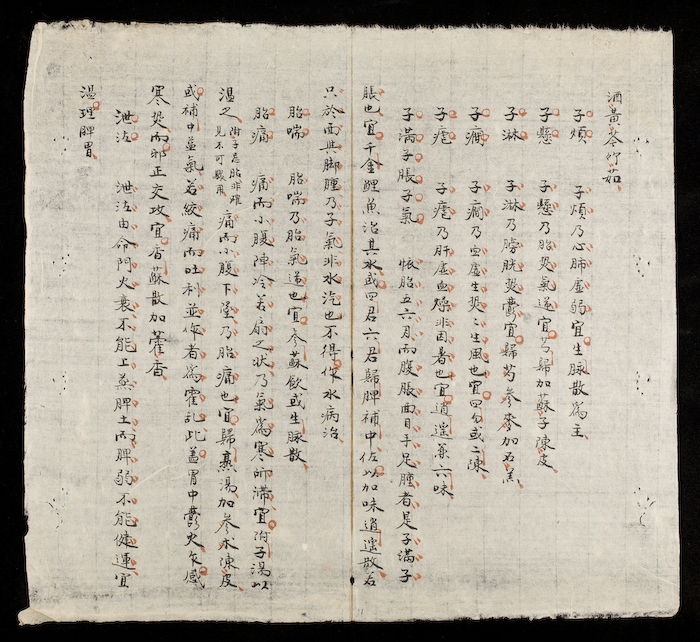 酒黃芩竹茹
子煩　子煩乃心肺虛弱宜生脉散為主
子懸　子懸乃胎熱氣逆宜芎歸加蘇子陳皮
子淋　子淋乃膀胱熱鬱宜歸芍參麥加石羔
子癇　子癇乃血虛生熱〻生風也宜四勿或二陳
子瘧　子瘧乃肝虛血燥非因暑也宜逍遥兼六味
子滿子脹子氣　懷胎五六月而腹脹面目手足腫者是子滿子
脹也宜千金鯉魚治其水或四君六君歸脾補中佐以加味逍遥散若
只於面與脚腫乃子氣非水汽也不得作水病治
胎喘　胎喘乃胎氣逆也宜參蘇飲或生脉散
胎痛　痛而小腹陣冷若扇之狀乃氣為寒所滯宜附子湯以
溫之附子忌胎非確見不可驟用　痛而小腹下墜乃胎痛也宜歸湯加參朮陳皮
或補中益氣若絞痛而吐利並作者為霍乱此盖胃中鬱火欠感
寒熱而邪正交攻宜香蘇散加藿香
泄泻　泄泻由命門火衰不能上蒸脾土而脾弱不能健運宜
溫理脾胃